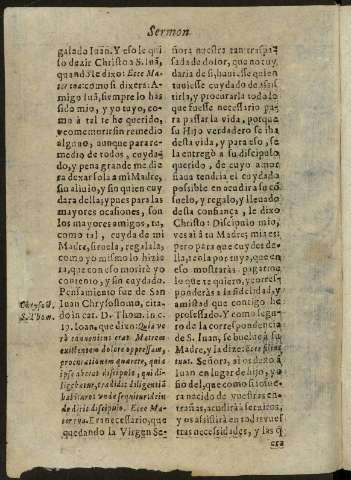 Sermon
galado Iuã. Y eso le qui
so dezir Christo a S. Iuã,
quando le dixo: Ecce Ma
ter tua: como si dixera: A-
migo Iuã, siempre lo has
sido mio, y yo tuyo, co-
mo à tal te he querido,
yo me morirè sin remedio
alguno, aunque para re-
medio de todos, cuyda-
do, y pena grande me die
ra dexar sola a mi Madre,
sin aliuio, y sin quien cuy
dara della; y pues para las
mayores ocasiones, son
los mayores amigos, tu,
como tal, cuyda de mi
Madre, siruela, regalala,
como yo mismo lo hizie
ra, que con eso morirè yo
contento, y sin cuydado.
Pensamiento fue de San
Iuan Chrysostomo, cita-
do in cat. D. Thom. in c.
19. Ioan. que dize: Quia ve
rò
existentem dolore oppressam,
procurationem quærere, quia
ipse aberat discipulo, qui di-
ligebatur, tradidit diligentiã
habiturus
do dicit discipulo. Ecce Ma-
ter tua. Era necessario, que
quedando la Virgen Se-
Chrysost.
S. Thom.
ñora nuestra tan traspas
sada de dolor, que no cuy
daria de si, huuiesse quien
tuuiesse cuydado de assis
tirla, y procurarla todo lo
que fuesse necessario pa-
ra passar la vida, porque
su Hijo verdadero se iba
desta vida, y para eso, se
la entregò a su discipulo
querido, de cuyo amor
tendria el cuydado
possible en acudir a su cõ
suelo, y regalo, y lleuado
desta confiança, le dixo
Christo: Discipulo mio,
ves aì à tu Madre; mia es:
pero para que cuydes de-
lla, tenla por tuya, que en
eso mostraràs pagarme
lo que te quiero, y corres
ponderàs a la fidelidad, y
amistad que contigo he
professado. Y como segu
ro de la correspondencia
de S. Iuan, se buelue à su
Madre, y la dize: Ecce filius
tuus. Señora, aì os dexo à
Iuan en lugar de hijo, y fio
del, que como si huuiera
nacido de vuestras en-
trañas, acudirà à seruiros,
y os assistirà en todas vues
tras necessidades, y las q̃